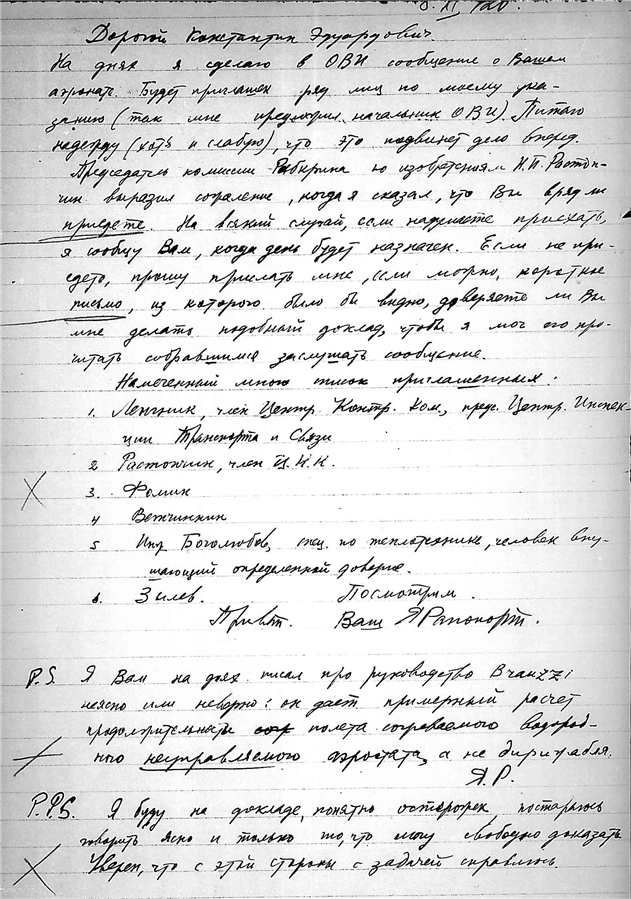 XI 26.
Дорогой Константин Эдуардович.
На днях я сделаю в ОВИ сообщение о Вашем
аэронате. Будет приглашен ряд лиц по моему ука-
занию (так мне предложил начальник ОВИ). Питаю
надежду (хоть и слабую), что это подвинет дело вперед.
Председатель комиссии Рабкрина по изобретениям Н.П. Растоп-
чин выразил сожаление, когда я сказал, что Вы вряд ли
приедете. На всякий случай, если надумаете приехать,
я сообщу Вам, когда день будет назначен. Если не при-
едете, прошу прислать мне, если можно, короткое
письмо, из которого было бы видно, доверяете ли Вы
мне делать подобный доклад, чтобы я мог его про-
читать собравшимся заслушать сообщение.
Намеченный мною список приглашенных:
1. Ленгник, член Центр. Контр. Ком., пред. Центр. Инспек-
ции Транспорта и Связи
2 Растопчин, член Ц.К.К.
3. Фомин
4 Ветчинкин
5 Инж Боголюбов, спец. по теплотехнике, человек вну-
шающий определенное доверие.
6. Зилев. Посмотрим.
Привет. Ваш ЯРапопорт.
P.S. Я Вам на днях писал про руководство Branzzi
неясно или неверно: он дает примерный расчет
продолжительности полета согреваемого водород-
ного неуправляемого аэростата, а не дирижабля.
Я.Р.
P.P.S. Я буду на докладе, понятно осторожен, постараюсь
говорить ясно и только то, что могу свободно доказать
Уверен, что с этой стороны с задачей справлюсь.